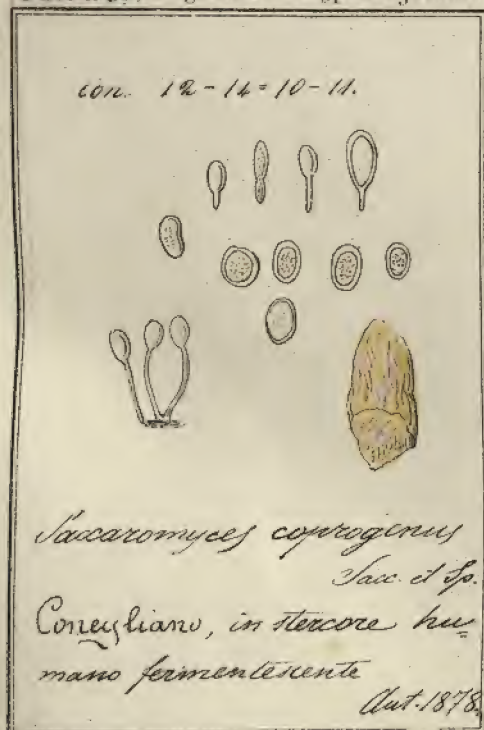 con. 12 - 14 = 10 - 11.
Saccaromyces coprogenus
Sacc. et Sp.
Conegliano, in stercore hu=
mano fermentescente
Aut. 1878.